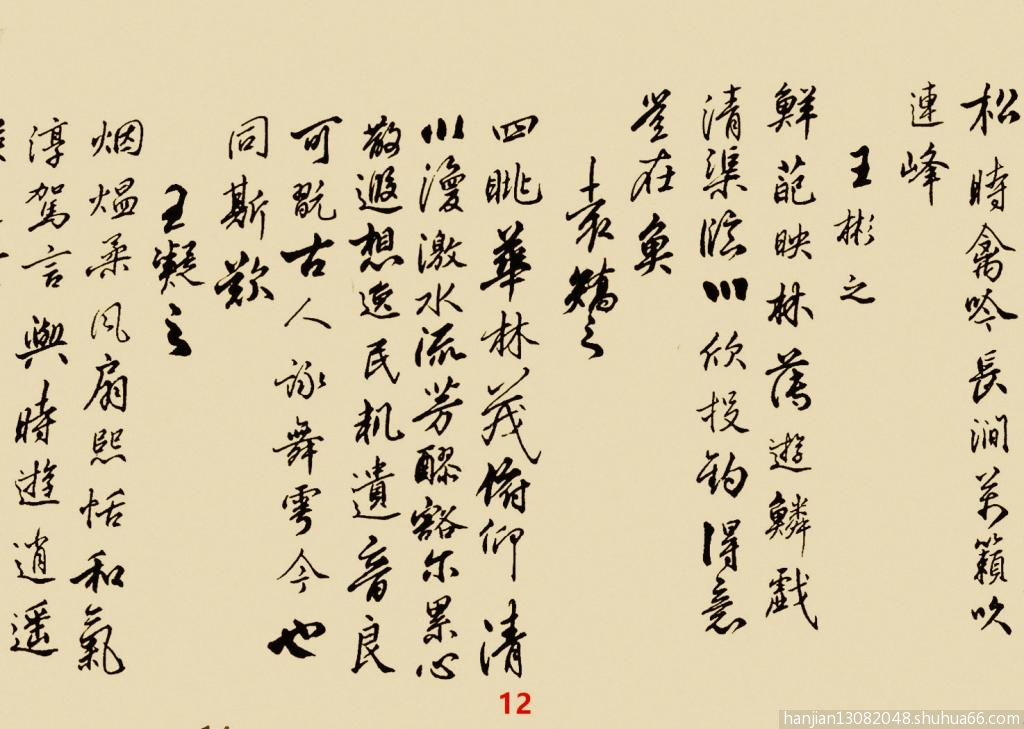 松時禽吟長澗万籟吹
連峰
王彬之
鮮葩映林薄遊鱗戲
清渠臨川欣投釣得意
豈在魚
袁矯之
四眺華林茂俯仰清
川漫激水流芳醪豁尔累心
散遐想逸民軌遺音良
可翫古人詠舞雩今也
同斯歎
王凝之
烟熅柔风扇熙恬和氣
淳駕言興時遊逍遥
12
hanjian13082048.shuhua66.com